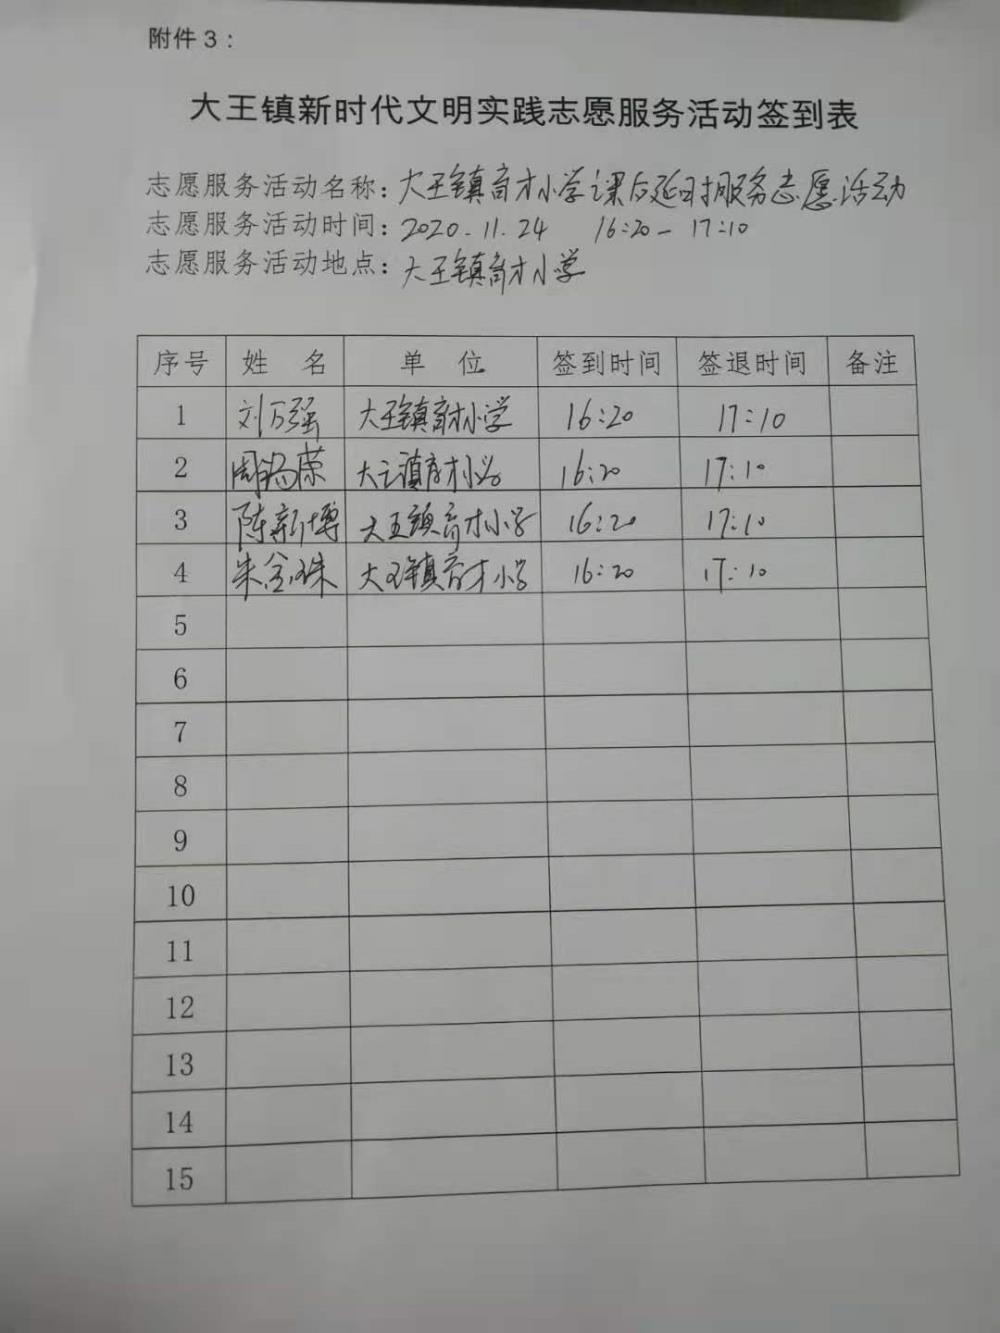 附件3：
大王镇新时代文明实践志愿服务活动签到表
志愿服务活动名称：大王镇育才小学课后延时服务志愿活动
志愿服务活动时间：2020.11.24 16:20-17:10
志愿服务活动地点：大王镇育才小学
序号 姓 名 单 位 签到时间 签退时间 备注
1 刘万强 大王镇育才小学 16:20 17:10
2 周 荣 大王镇育才小学 16:20 17:10
3 陈新博 大王镇育才小学 16:20 17:10
4 朱金珠 大王镇育才小学 16:20 17:10
5
6
7
8
9
10
11
12
13
14
15